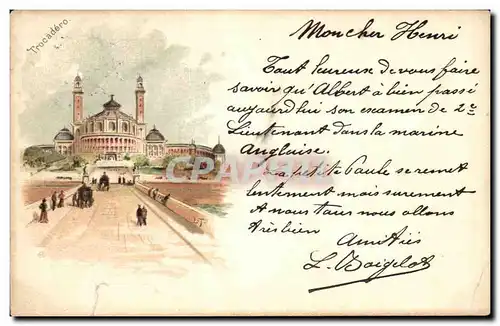 Trocadéro.
Mon cher Henri
Tout heureux de vous faire
savoir qu'Albert à bien passé
aujourdhui son examen de 2e
Lieutenant dans la marine
Anglaise.
La petite Paule se remet
lentement mais surement
A nous tous nous allons
très bien
Amitiés
L. Boigelot
CPARAMA